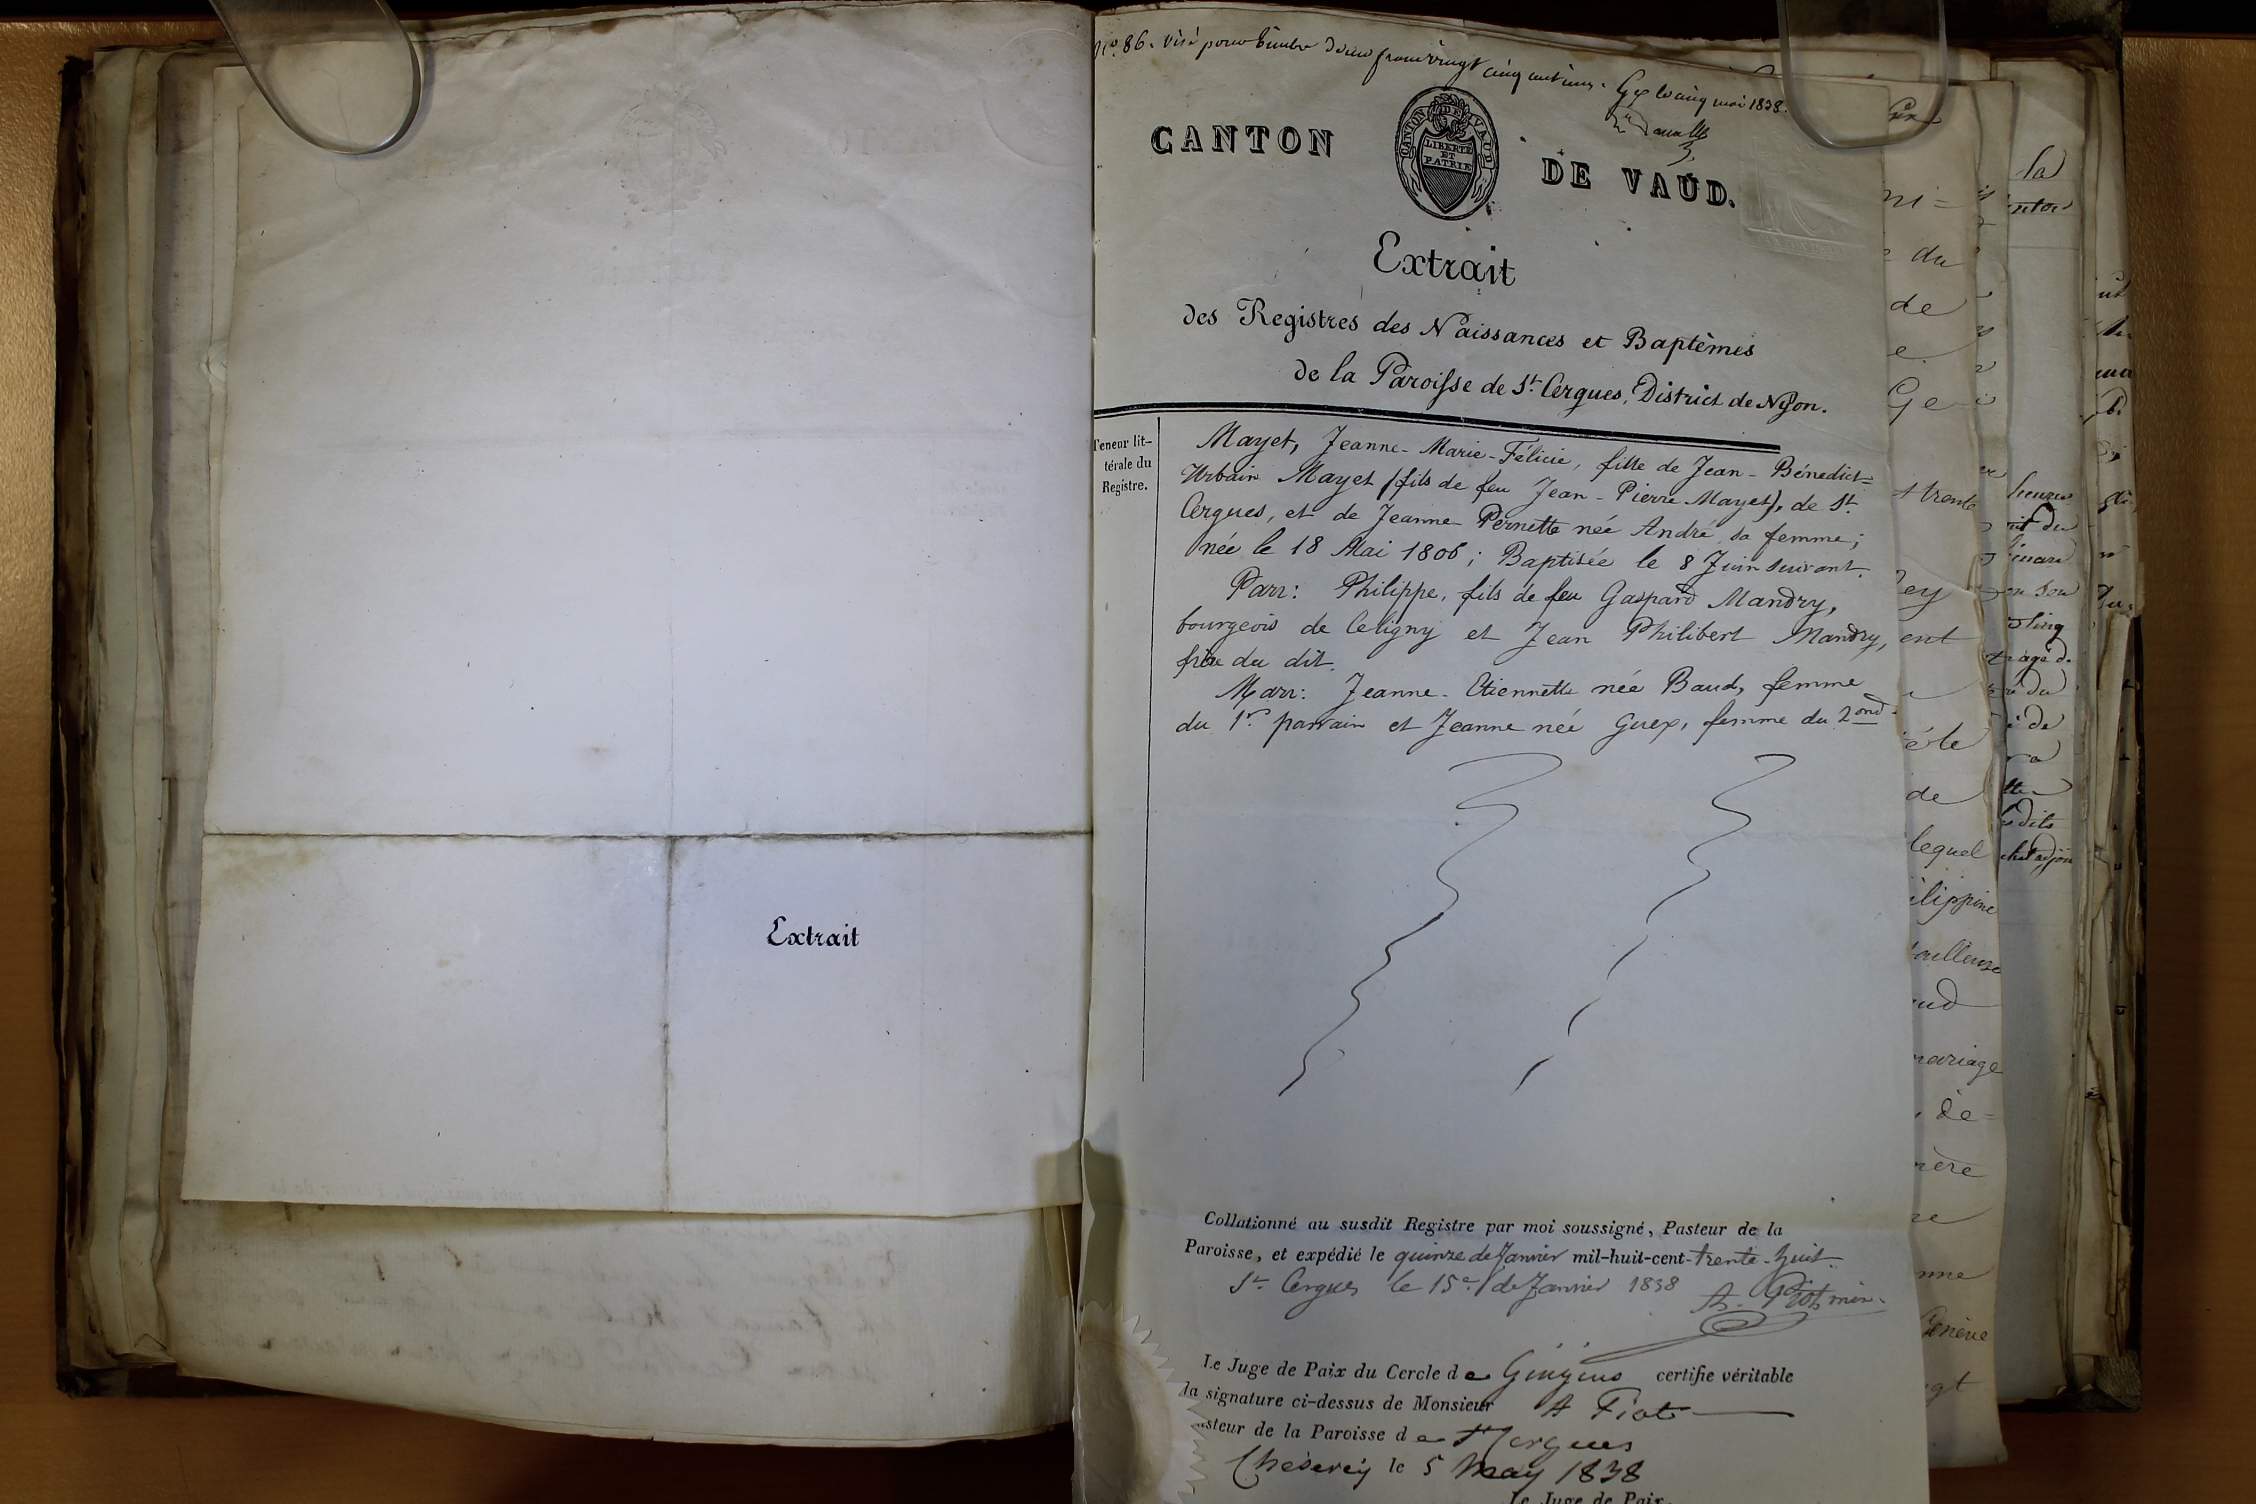 Extrait
No. 86. Visé pour timbre deux francs vingt cinq centimes. Gex le cinq mai 1838.
CANTON DE VAUD.
CANTON DE VAUD
LIBERTÉ
ET
PATRIE
Extrait
des Registres des Naissances et Baptêmes
de la Paroisse de St. Cergues, District de Nyon.
Teneur lit-
térale du
Registre.
Mayet, Jeanne-Marie-Félicie, fille de Jean-Bénedict=
Urbain Mayet (fils de feu Jean-Pierre Mayet), de St.
Cergues, et de Jeanne Pernette née André sa femme;
née le 18 Mai 1806; Baptisée le 8 Juin suivant.
Parr: Philippe, fils de feu Gaspard Mandry,
bourgeois de Celigny et Jean Philibert Mandry,
frère du dit.
Marr: Jeanne-Etiennette née Baud, femme
du 1r. parrain et Jeanne née Guex, femme du 2ond.
Collationné au susdit Registre par moi soussigné, Pasteur de la
Paroisse, et expédié le quinze de Janvier mil-huit-cent-trente-huit.
St. Cergues le 15e. de Janvier 1838
Le Juge de Paix du Cercle de Gingins certifie véritable
la signature ci-dessus de Monsieur A Piot
asteur de la Paroisse de St Cergues
Chéserex le 5 May 1838
Le Juge de Paix,
la
du
de
e
Ge
trente
ey
ent
de
lequel
ilippine
ailleuse
aud
mariage
, dé=
mère
nne
Genève
gt